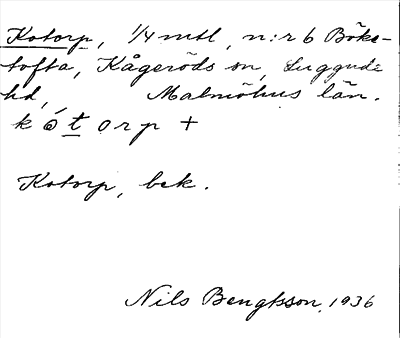 Kotorp, 1/4 mtl, n:r 6 Böks-
tofta, Kågeröds sn, Luggude
hd, Malmöhus län.
kótorp +
Kotorp, bek.
Nils Bengtsson, 1936